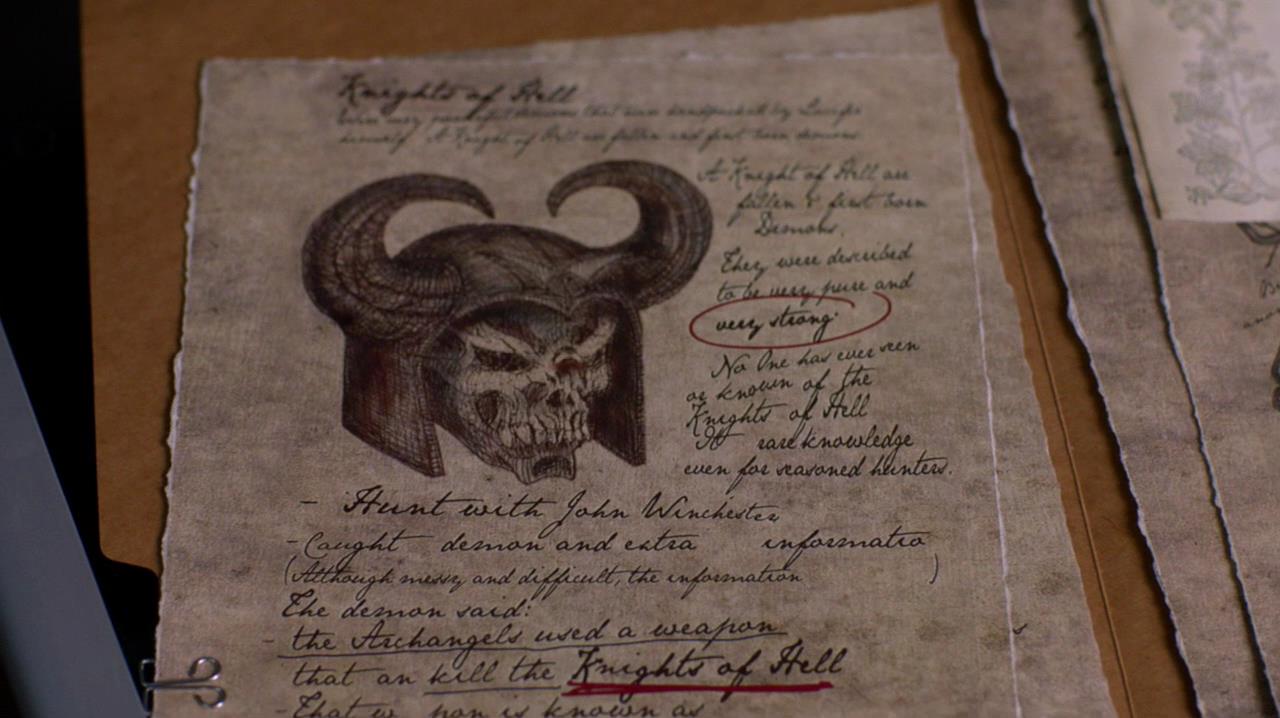 Knights of Hell
were very powerful demons that were handpicked by Lucifer
himself. A Knight of Hell are fallen and first born demons.
A Knight of Hell are
fallen & first born
Demons.
They were described
to be very pure and
very strong.
No One has ever seen
or known of the
Knights of Hell
rare knowledge
even for seasoned hunters.
- Hunt with John Winchester
- Caught demon and extra informatio
(Although messy and difficult, the information )
The demon said:
- the Archangels used a weapon
that an kill the Knights of Hell
- That w pon is known as